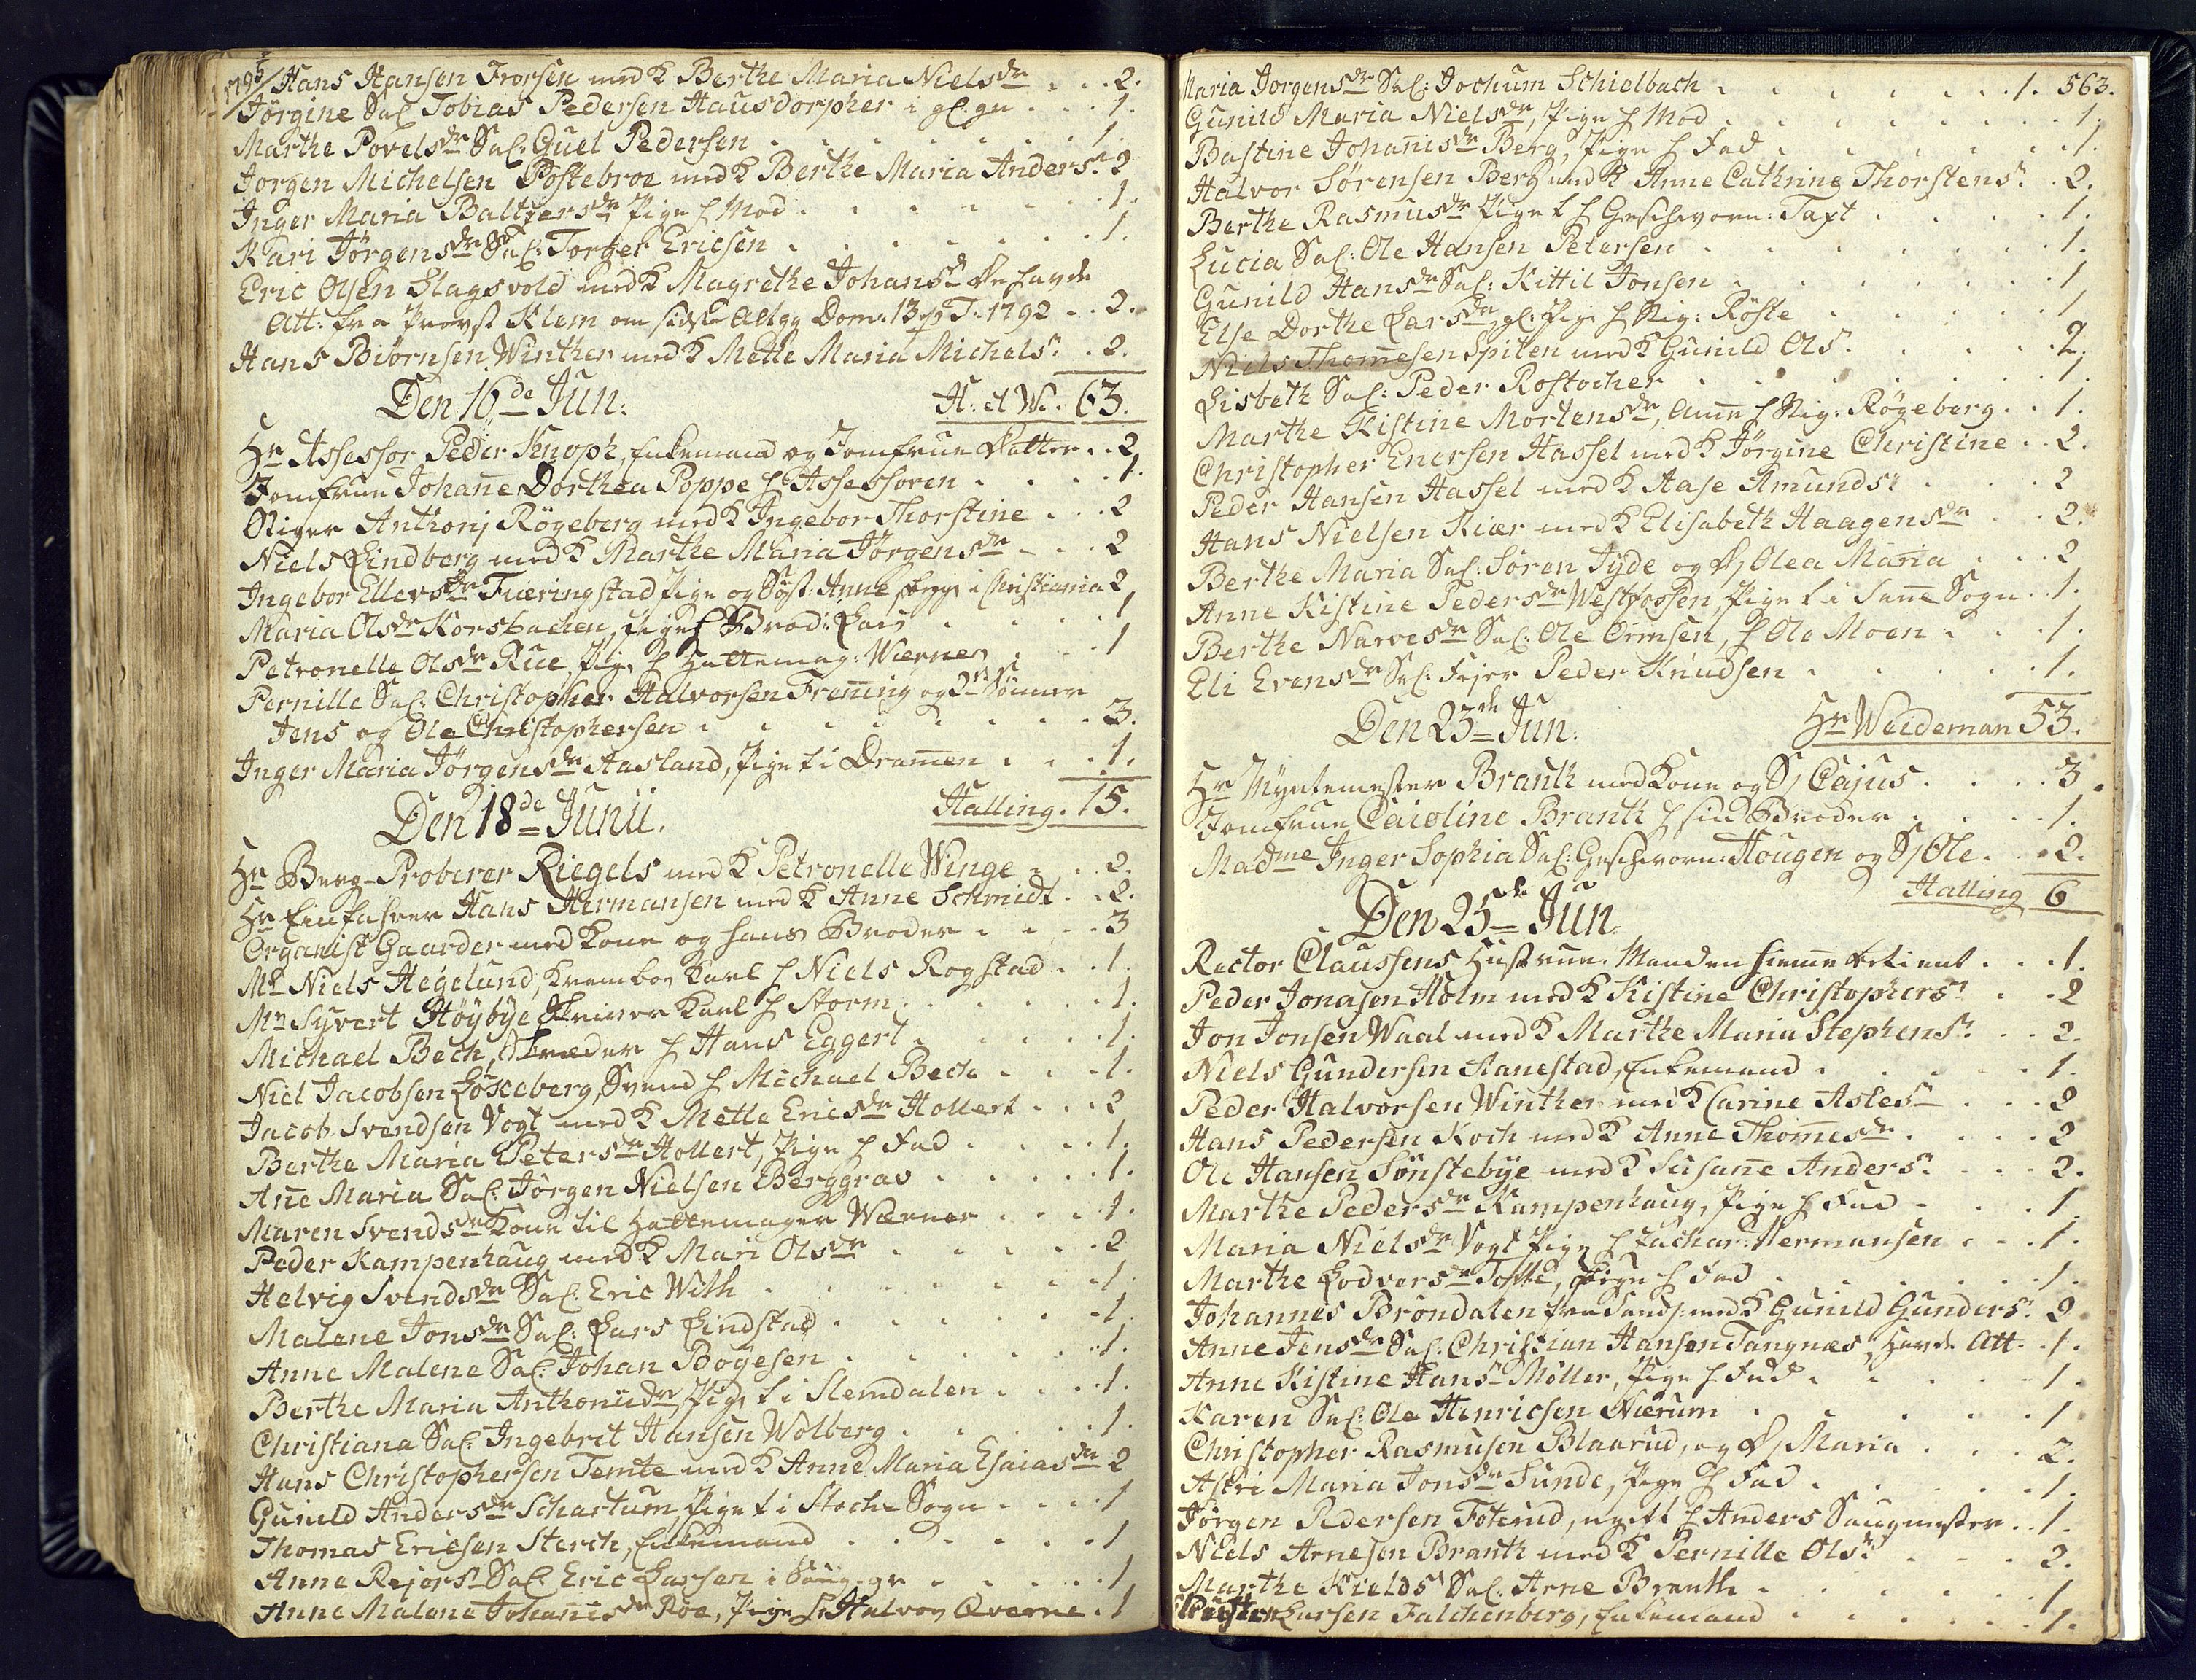 1795
Hans Hansen Frorsen med K Berthe Maria Nielsdr . . 2.
Jörgine Sal. Tobias Pedersen Hausdorpher i gl. gr . . 1.
Marthe Povelsdr Sal. Guel Pedersen . . 1.
Jorgen Michelsen Postebroe med K Berthe Maria Anders. 2
Inger Maria Baltzersdr Pige h Mod . . 1.
Kari Jörgensdr Sal. Torger Ericsen . . 1.
Eric Olsen Slagsvold med K Magrethe Johansd de havde
Att: fra Provst Klem om sidste Altg. Dom. 13 p T. 1792 . . 2.
Hans Biörnsen Winther med K Mette Maria Michels. . 2.
Den 16de Jun: H. et W. 63.
Hr Assessor Peder Knoph, Enkemand og Jomfrue Datter . . 2
Jomfrue Johane Dorthea Poppe h Assessoren . . 1.
Stiger Anthonj Rögeberg med K Ingebor Thorstine . . 2
Niels Lindberg med K Marthe Maria Jörgensdr . . 2
Ingebor Ellersdr Fiæringstad Pige og Söst: Anne, begge i Christiania 2
Maria Olsdr Korsbachen, Pige h Brod: Lars . . 1
Petronelle Olsdr Rue, Pige h Hattemag: Wærner . . 1
Pernille Sal. Christopher Halvorsen Freming og 2de Sönner
Jens og Ole Christophersen . . 3.
Inger Maria Jörgensdr Aasland, Pige t i Dramen . . 1.
Den 18de Junii. Halling. 15.
Hr Berg-Proberer Riegels med K Petronelle Winge . . 2.
Hr Einfahrer Hans Hermansen med K Anne Schmidt . . 2.
Organist Gaarder med Kone og hans Broder . . 3
Mr Niels Hegelund, Krambod Karl h Niels Rogstad . . 1.
Mr Syvert Höybye Skriver Karl h Storm . . 1.
Michael Bech, Skræder h Hans Eggert . . 1.
Niel Jacobsen Löscheberg, Svend h Michael Bech . . 1.
Jacob Svendsen Vogt med K Mette Ericsdr Hollert . . 2
Berthe Maria Petersdr Hollert, Pige h Fad . . 1.
Ane Maria Sal. Jörgen Nielsen Berggrav . . 1.
Maren Svendsdr Kone til Hattemager Wærner . . 1.
Peder Kampenhaug med K Mari Olsdr . . 2
Helvig Svendsdr Sal. Eric With . . 1.
Malene Jonsdr Sal. Lars Lindstad . . 1.
Anne Malene Sal. Johan Böyesen . . 1.
Berthe Maria Anthonisdr Pige t i Slemdalen . . 1.
Christiana Sal. Ingebret Hansen Wolberg . . 1.
Hans Christophersen Temte med K Anne Maria Esaiasdr 2
Gunild Andersdr Schartum, Pige t i Stoche Sogn . . 1
Thomas Ericsen Sterch, Enkemand . . 1
Anne Rejers. Sal. Eric Larsen i Saug-gr . . 1
Anne Malene Johanisdr Roe, Pige h Halvor Qverne . 1
Maria Jorgensdr Sal. Jochum Schielbach . . 1. 563.
Gunild Maria Nielsdr, Pige h Mod . . 1.
Bastine Johanisdr Berg, Pige h Fad . . 1.
Halvor Sörensen Berg med K Anne Cathrine Thorstens. . 2.
Berthe Rasmusdr Pige t h Geschvorn: Taxt . . 1.
Lucia Sal. Ole Hansen Petersen . . 1.
Gunild Hansdr Sal: Kittil Jonsen . . 1
Else Dorthe Larsdr, gl. Pige h Stig: Röste . . 1
Niels Thomesen Spiten med K Gunild Ols. . . 2.
Lisbeth Sal: Peder Rostocher . . 1
Marthe Kistine Mortensdr, Amme h Stig: Rögeberg . . 1.
Christopher Enersen Hassel med K Jörgine Christine . . 2.
Peder Hansen Hassel med K Aase Amunds. . . 2
Hans Nielsen Kiær med K Elisabeth Haagensdr . . 2.
Berthe Maria Sal. Sören Tyde og D, Olea Maria . . 2
Anne Kistine Pedersdr Westfossen, Pige t i Sane Sogn . 1.
Berthe Narvesdr Sal: Ole Ormsen, h Ole Moen . . 1.
Eli Evensdr Sal. Fejer Peder Knudsen . . 1.
Den 23de Jun. Hr Weideman 53.
Hr Myntemester Branth med Kone og S, Cajus . . 3.
Jomfrue Caroline Branth h sin Broder . . 1.
Madme Inger Sophia Sal: Geschworn: Hougen og S, Ole . 2.
Den 25de Jun. Halling 6
Rector Claussens Hustrue. Manden hieme betient . . 1.
Peder Jonasen Holm med K Kistine Christophers. . . 2
Jon Jonsen Waal med K Marthe Maria Stephens. . . 2.
Niels Gundersen Hanestad, Enkemand . . 1.
Peder Halvorsen Winther med K Carine Asles. . . 2
Hans Pedersen Koch med K Anne Thomesdr . . 2
Ole Hansen Sönstebye med K Susane Anders. . . 2.
Marthe Pedersdr Kampenhaug, Pige h Fad . . 1.
Maria Nielsdr Vogt Pige h Zachar: Hermansen . . 1.
Marthe Lodversdr Tofte, Pige h Fad . . 1.
Johannes Bröndalen fra Sands: med K Gunild Gunders. 2
Anne Jensdr Sal. Christian Hansen Tangnæs, Havde Att. . 1.
Anne Kistine Hans. Möller, Pige h Fad . . 1.
Karen Sal: Ole Henricsen Nærum . . 1
Christopher Rasmusen Blaarud, og D, Maria . . 2.
Astri Maria Jonsdr Sunde, Pige h Fad . . 1.
Jörgen Pedersen Foterud, ugift h Anders Saugmester . . 1.
Niels Arnesen Branth med K Pernille Ols. . . 2.
Marthe Kields. Sal. Arne Branth . . 1
Larsen Falchenberg, Enkemand . . 1.